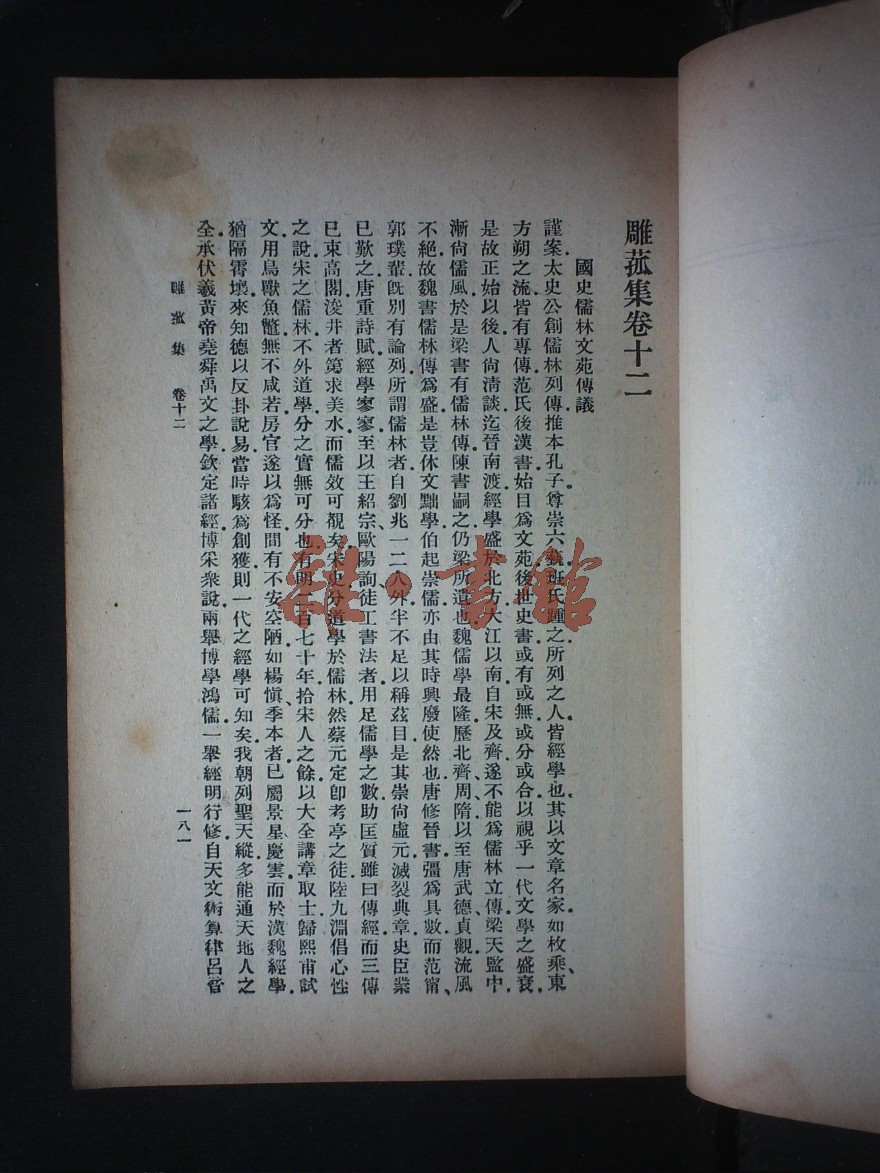 雕菰集卷十二
國史儒林文苑傳議
謹案太史公創儒林列傳推本孔子尊崇六藝班氏踵之所列之人皆經學也其以文章名家如枚乘、東
方朔之流皆有專傳范氏後漢書始目爲文苑後世史書或有或無或分或合以視乎一代文學之盛衰
是故正始以後人尙淸談迄晉南渡經學盛於北方大江以南自宋及齊遂不能爲儒林立傳梁天監中
漸尙儒風於是梁書有儒林傳陳書嗣之仍梁所遺也魏儒學最隆歷北齊、周、隋以至唐武德、貞觀流風
不絕故魏書儒林傳爲盛是豈休文黜學伯起崇儒亦由其時興廢使然也唐修晉書彊爲具數而范甯、
郭璞輩旣別有論列所謂儒林者自劉兆一二人外半不足以稱茲目是其崇尙虛元滅裂典章史臣業
已歎之唐重詩賦經學寥寥至以王紹宗、歐陽詢、徒工書法者用足儒學之數助匡質雖曰傳經而三傳
已束高閣浚井者第求美水而儒效可覩矣宋史分道學於儒林然蔡元定卽考亭之徒陸九淵倡心性
之說宋之儒林不外道學分之實無可分也有明二百七十年拾宋人之餘以大全講章取士歸熙甫試
文用鳥獸魚鼈無不咸若房官遂以爲怪間有不安空陋如楊愼、季本者已屬景星慶雲而於漢魏經學
猶隔霄壤來知德以反卦說易當時駭爲創獲則一代之經學可知矣我朝列聖天縱多能通天地人之
全承伏羲黃帝堯舜禹文之學欽定諸經博采衆說兩舉博學鴻儒一舉經明行修自天文術算律呂音
雕菰集 卷十二
一八一
雜·書館